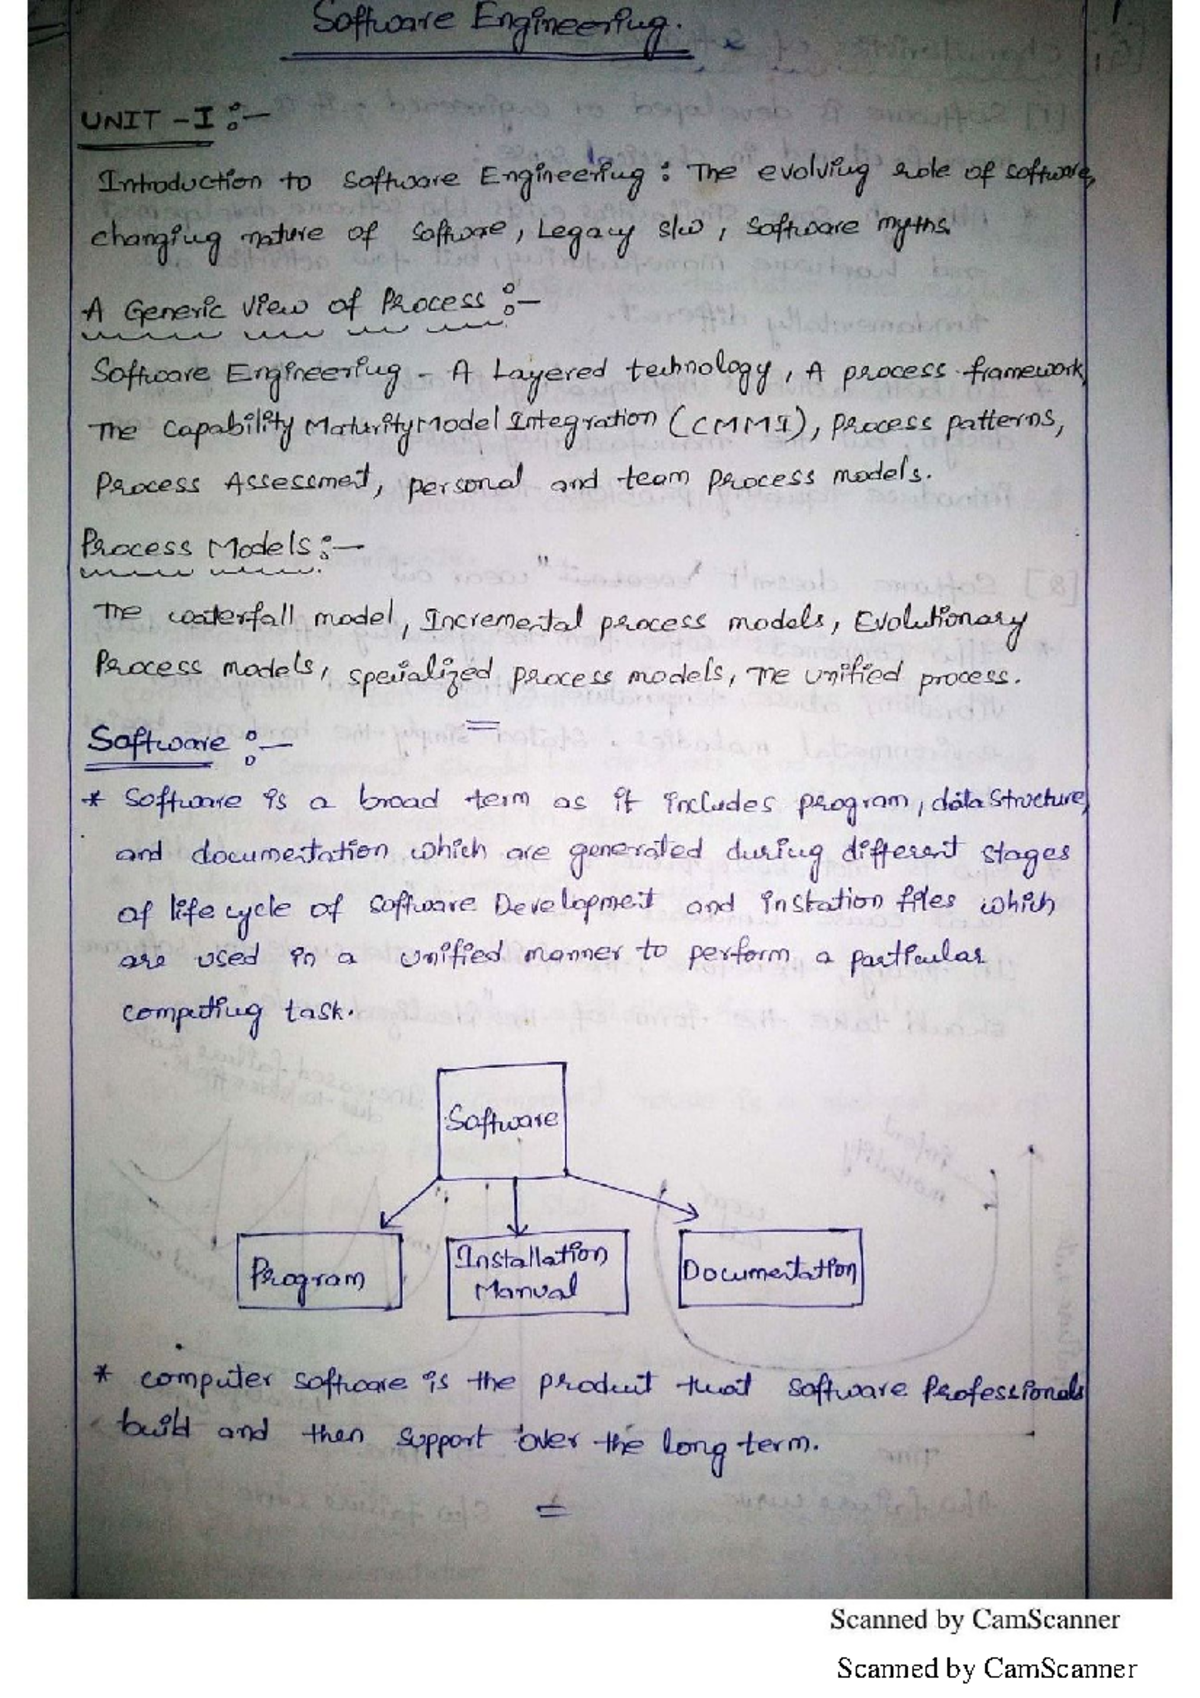 Software Engineering.
UNIT - I :-
Introduction to Software Engineering : The evolving role of software,
changing nature of software, Legacy s/w, software myths.
A Generic view of Process :-
Software Engineering - A Layered technology, A process framework,
The Capability Maturity Model Integration (CMMI), process patterns,
Process Assessment, personal and team process models.
Process Models :-
The waterfall model, Incremental process models, Evolutionary
Process models, specialized process models, The unified process.
Software :-
* Software is a broad term as it includes program, data structure,
and documentation which are generated during different stages
of life cycle of software Development and instation files which
are used in a unified manner to perform a particular
computing task.
Software
Program
Installation
Manual
Documentation
* computer software is the product that software Professionals
build and then support over the long term.
Scanned by CamScanner
Scanned by CamScanner